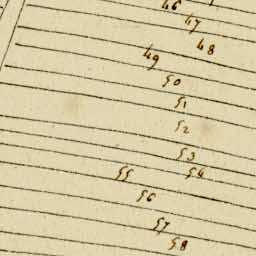 46
47
48
49
50
51
52
53
54
55
56
57
58